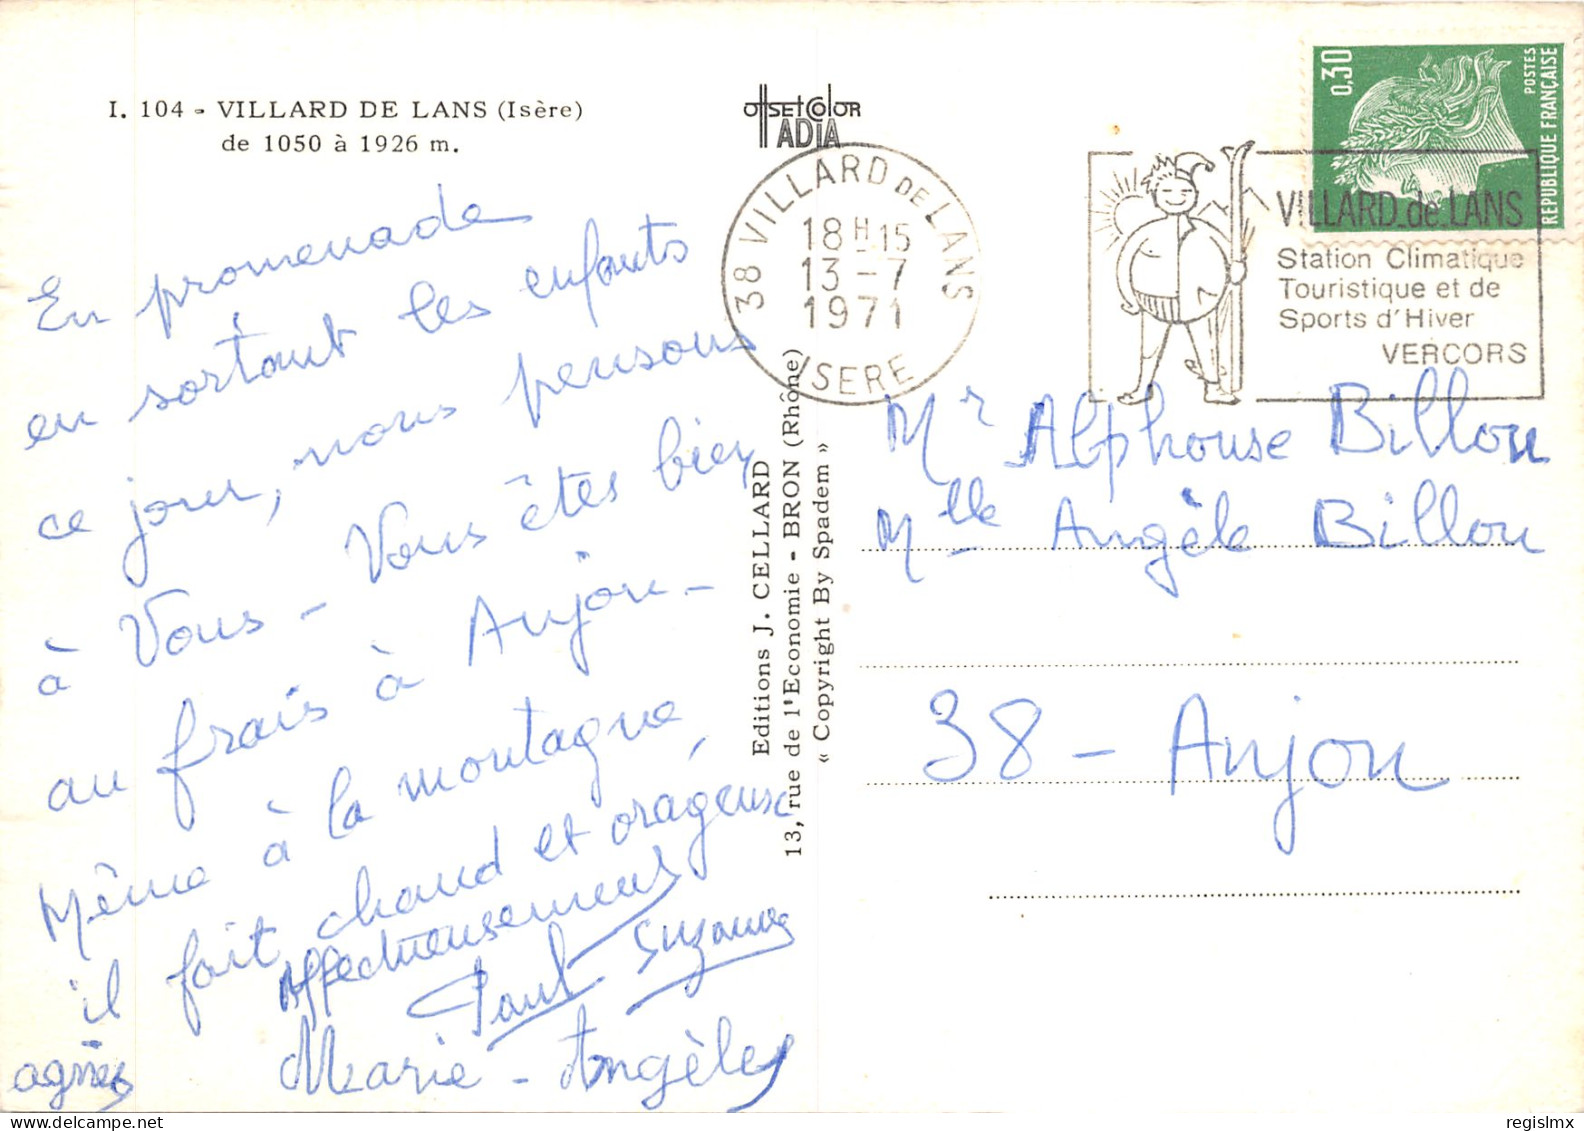 I. 104 - VILLARD DE LANS (Isère)
de 1050 à 1926 m.
OffSET COlOR
ADIA
En promenade
en sortant les enfants
ce jour, nous pensons
à Vous - Vous êtes bien
au frais à Anjou -
Même à la montagne,
il fait chaud et orageux
Affectueusement
Paul Suzanne
Marie - Angèle
agnès
Editions J. CELLARD
13, rue de l'Economie - BRON (Rhône)
« Copyright By Spadem »
38 VILLARD DE LANS
18 H 15
13 - 7
1971
ISERE
VILLARD-de-LANS
Station Climatique
Touristique et de
Sports d'Hiver
VERCORS
0,30
POSTES
REPUBLIQUE FRANÇAISE
Mr Alphonse Billon
Mlle Angèle Billon
38 - Anjou
regislmx